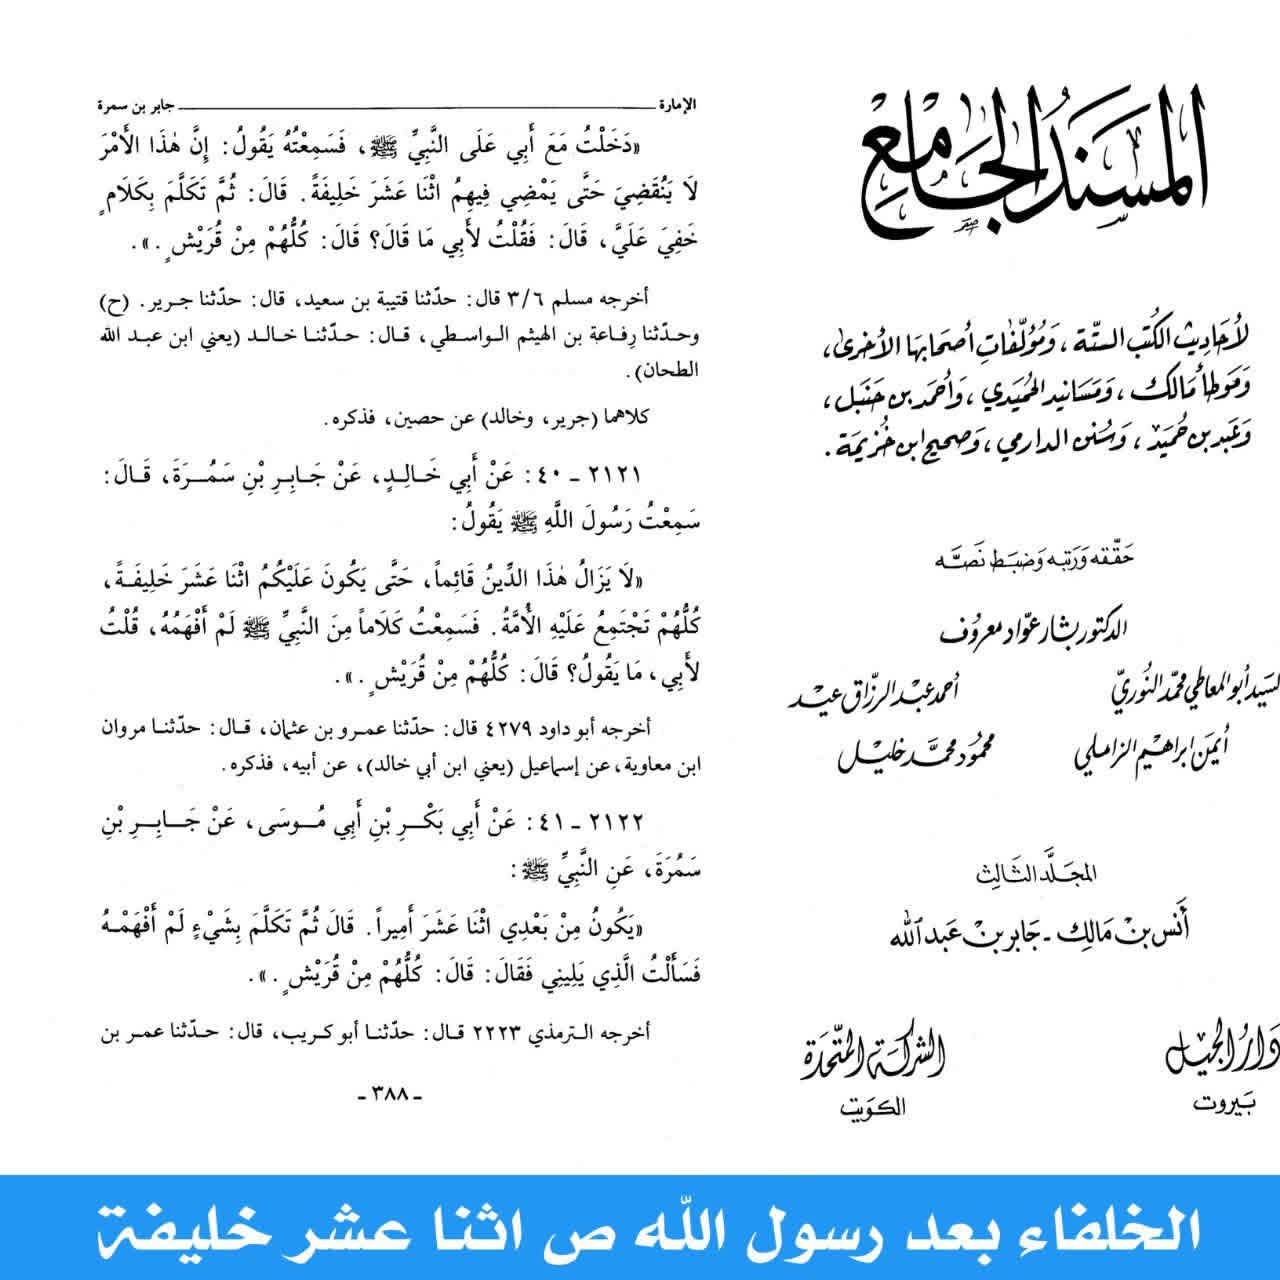 المسند الجامع
لأحاديث الكتب الستة، ومؤلفات أصحابها الأخرى،
وموطأ مالك، ومسانيد الحميدي، وأحمد بن حنبل،
وعبد بن حميد، وسنن الدارمي، وصحيح ابن خزيمة.
حققه ورتبه وضبط نصه
الدكتور بشار عواد معروف
السيد أبو المعاطي محمد النوري أحمد عبد الرزاق عيد
أيمن ابراهيم الزاملي محمود محمد خليل
المجلد الثالث
أنس بن مالك - جابر بن عبد الله
دار الجيل الشركة المتحدة
بيروت الكويت
الإمارة جابر بن سمرة
«دَخَلْتُ مَعَ أَبِي عَلَى النَّبِيِّ ﷺ، فَسَمِعْتُهُ يَقُولُ: إِنَّ هٰذَا الأَمْرَ
لَا يَنْقَضِيَ حَتَّى يَمْضِي فِيهِمُ اثْنَا عَشَرَ خَلِيفَةً. قَالَ: ثُمَّ تَكَلَّمَ بِكَلَامٍ
خَفِيَ عَلَيَّ، قَالَ: فَقُلْتُ لأَبِي مَا قَالَ؟ قَالَ: كُلُّهُمْ مِنْ قُرَيْشٍ.».
أخرجه مسلم ٣/٦ قال: حدّثنا قتيبة بن سعيد، قال: حدّثنا جرير. (ح)
وحدّثنا رِفاعة بن الهيثم الواسطي، قال: حدّثنا خالد (يعني ابن عبد الله
الطحان).
كلاهما (جرير، وخالد) عن حصين، فذكره.
٢١٢١ - ٤٠: عَنْ أَبِي خَالِدٍ، عَنْ جَابِرِ بْنِ سَمُرَةَ، قَالَ:
سَمِعْتُ رَسُولَ اللَّهِ ﷺ يَقُولُ:
«لَا يَزَالُ هٰذَا الدِّينُ قَائِماً، حَتَّى يَكُونَ عَلَيْكُمُ اثْنَا عَشَرَ خَلِيفَةً،
كُلُّهُمْ تَجْتَمِعُ عَلَيْهِ الأُمَّةُ. فَسَمِعْتُ كَلَاماً مِنَ النَّبِيِّ ﷺ لَمْ أَفْهَمُهُ، قُلْتُ
لأَبِي، مَا يَقُولُ؟ قَالَ: كُلُّهُمْ مِنْ قُرَيْشٍ.».
أخرجه أبو داود ٤٢٧٩ قال: حدّثنا عمرو بن عثمان، قال: حدّثنا مروان
ابن معاوية، عن إسماعيل (يعني ابن أبي خالد)، عن أبيه، فذكره.
٢١٢٢ - ٤١: عَنْ أَبِي بَكْرِ بْنِ أَبِي مُوسَى، عَنْ جَابِرِ بْنِ
سَمُرَةَ، عَنِ النَّبِيِّ ﷺ:
«يَكُونُ مِنْ بَعْدِي اثْنَا عَشَرَ أَمِيراً. قَالَ ثُمَّ تَكَلَّمَ بِشَيْءٍ لَمْ أَفْهَمْهُ
فَسَأَلْتُ الَّذِي يَلِينِي فَقَالَ: قَالَ: كُلُّهُمْ مِنْ قُرَيْشٍ.».
أخرجه الترمذي ٢٢٢٣ قال: حدّثنا أبو كريب، قال: حدّثنا عمر بن
- ٣٨٨ -
الخلفاء بعد رسول الله ص اثنا عشر خليفة